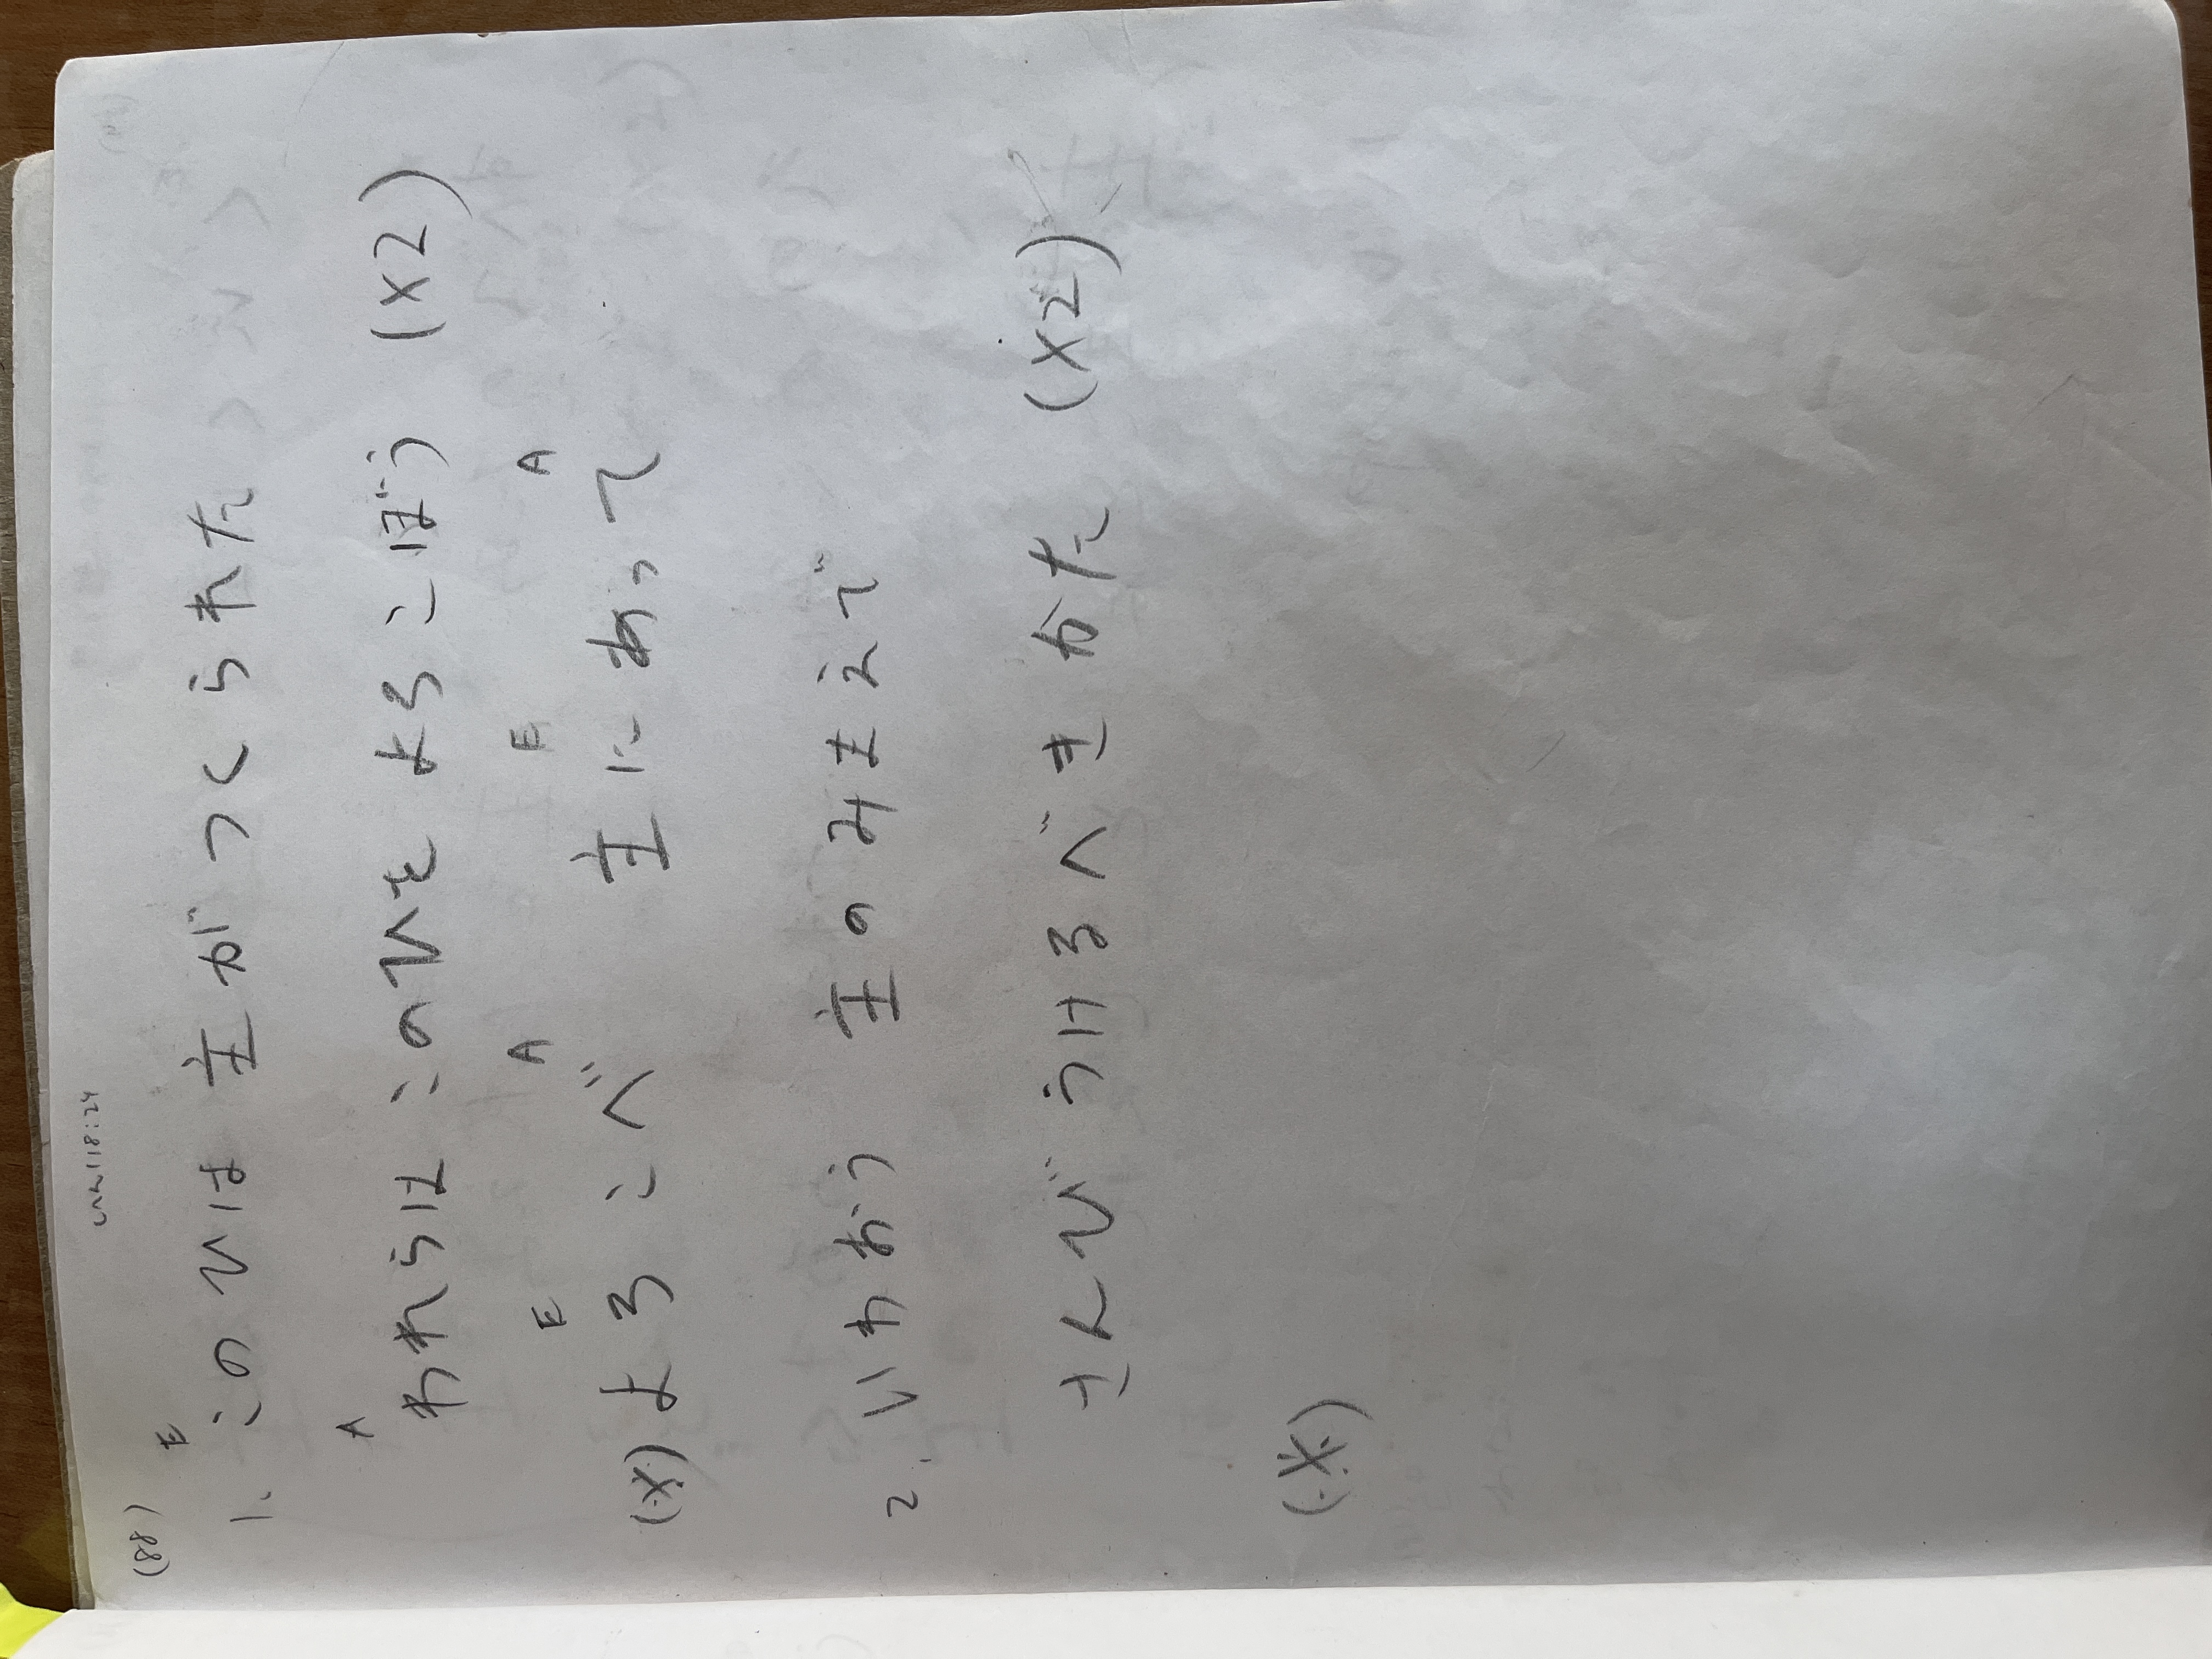 (88)
118:24
E
1. このひは 主が つくられた
A
われらは このひを よろこぼう (x2)
E A E A
(※) よろこべ 主に あって
2. いわおう 主の みまえで
さんび うけるべき かた (x2)
(※)